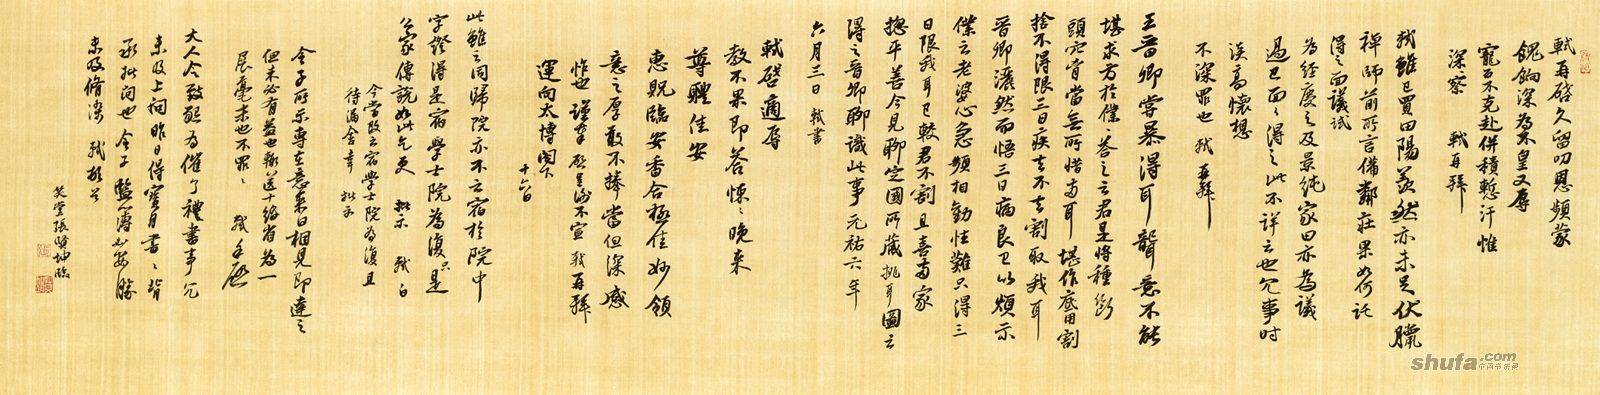 軾再啓久留叨恩頻蒙
餽餉深為不皇又辱
寵不克赴併積慙汗惟
深察 軾再拜
軾雖已買田陽羨然亦未足伏臘
禪師前所言備鄰莊果如何託
得之面議試
為經度之及景純家田亦為議
過已面之得之此不詳云也冗事時
瀆高懷想
不深罪也 軾再拜
王晉卿嘗暴得耳聾意不能
堪求方於僕僕答之云君是將種斷
頭穴胸當無所惜兩耳堪作底用割
捨不得限三日疾去不去割取我耳
晉卿灑然而悟三日病良已以頌示
僕云老婆心急頻相勸性難只得三
日限我耳已較君不割且喜兩家
揔平善今見聊定國所藏挑耳圖云
得之晉卿聊識此事元祐六年
六月三日 軾書
軾啓適辱
教不果即答悚悚晚來
尊體佳安
惠貺臨安香合極佳妙領
意之厚敢不捧當但深感
怍也謹奉啓上謝不宣軾再拜
運句太博閣下
十六日
此雖云同歸院亦不云宿於院中
字證得是宿學士院為復只是
公家傳說如此乞更批示 軾白
今當改云宿學士院為復且
待漏舍幸批示
令子所示專在意來日相見即達之
但未必有益也輒送十縑省為一
展毫末也不罪不罪 軾手啓
大人令致懇為催了禮書事冗
未及上問昨日得寶月書書背
承批問也令子監簿必安勝
未及修染 軾頓首
笑堂張賢坤臨
shufa.com